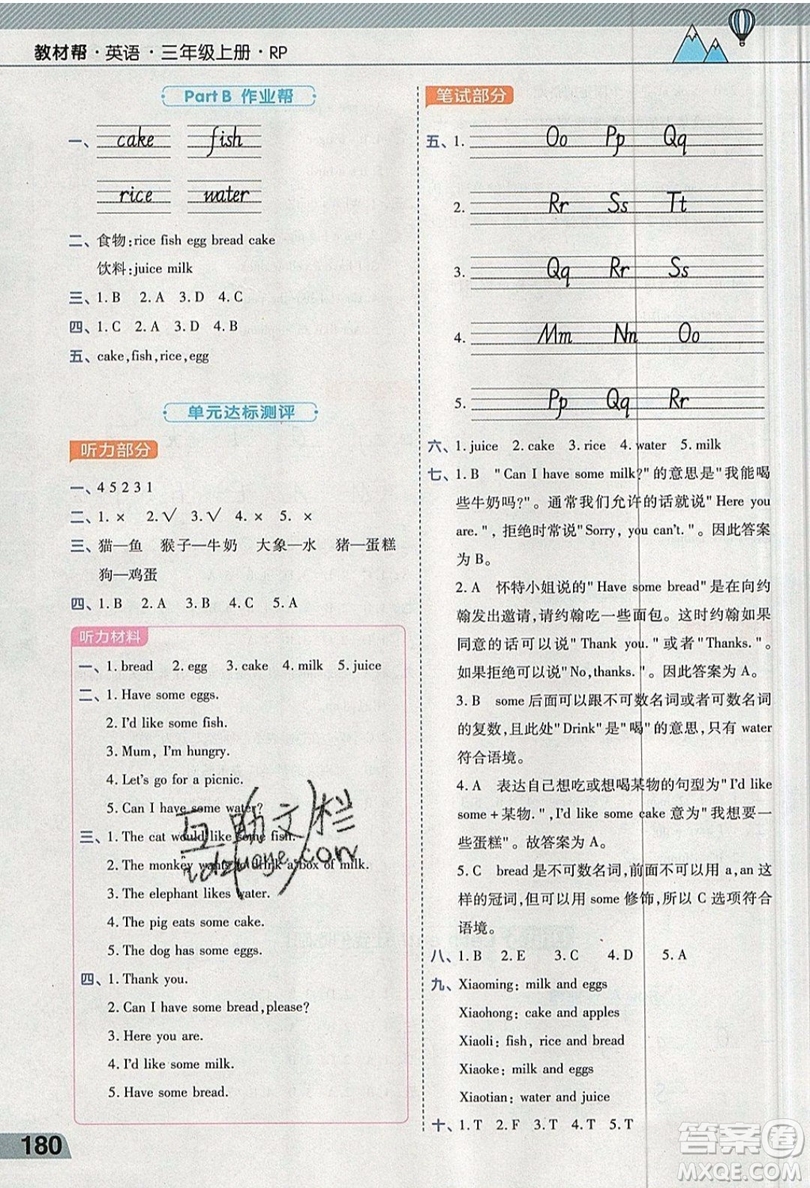 教材帮·英语·三年级上册·RP
Part B 作业帮
一、 cake fish
rice water
二、食物:rice fish egg bread cake
饮料:juice milk
三、1.B 2.A 3.D 4.C
四、1.C 2.A 3.D 4.B
五、cake,fish,rice,egg
单元达标测评
听力部分
一、4 5 2 3 1
二、1.× 2.✓ 3.✓ 4.× 5.×
三、猫—鱼 猴子—牛奶 大象—水 猪—蛋糕
狗—鸡蛋
四、1.B 2.A 3.B 4.C 5.A
听力材料
一、1. bread 2. egg 3. cake 4. milk 5. juice
二、1. Have some eggs.
2. I'd like some fish.
3. Mum, I'm hungry.
4. Let's go for a picnic.
5. Can I have some water?
三、1. The cat would like some fish.
2. The monkey wants to drink a box of milk.
3. The elephant likes water.
4. The pig eats some cake.
5. The dog has some eggs.
四、1. Thank you.
2. Can I have some bread,please?
3. Here you are.
4. I'd like some milk.
5. Have some bread.
180
笔试部分
五、1. Oo Pp Qq
2. Rr Ss Tt
3. Qq Rr Ss
4. Mm Nn Oo
5. Pp Qq Rr
六、1. juice 2. cake 3. rice 4. water 5. milk
七、1. B "Can I have some milk?"的意思是"我能喝
些牛奶吗?"。通常我们允许的话就说"Here you
are.",拒绝时常说"Sorry, you can't."。因此答案
为 B。
2. A 怀特小姐说的"Have some bread"是在向约
翰发出邀请,请约翰吃一些面包。这时约翰如果
同意的话可以说"Thank you."或者"Thanks."。
如果拒绝的话可以说"No,thanks."。因此选 A。
3. B some 后面可以跟不可数名词或者可数名词
的复数,且此处"Drink"是"喝"的意思,只有 water
符合语境。
4. A 表达自己想吃或想喝某物的句型为"I'd like
some+某物."。I'd like some cake 意为"我想要
一些蛋糕"。故答案为 A。
5. C bread 是不可数名词,前面不可以用 a,an 这
样的冠词,但可以用 some 修饰,所以 C 选项符合
语境。
八、1.B 2.E 3.C 4.D 5.A
九、Xiaoming: milk and eggs
Xiaohong: cake and apples
Xiaoli: fish, rice and bread
Xiaoke: milk and eggs
Xiaotian: water and juice
十、1.T 2.F 3.T 4.T 5.T
互助文栏
答案卷
MXQE.COM